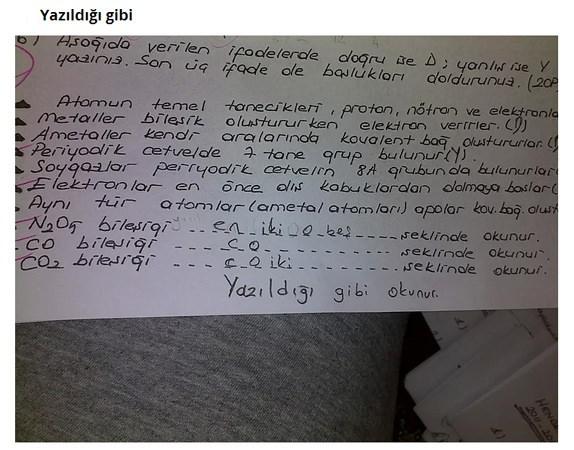 Yazıldığı gibi
b) Aşağıda verilen ifadelerde doğru ise D; yanlış ise Y
yazınız. Son üç ifade de boşlukları doldurunuz. (20P
Atomun temel tanecikleri, proton, nötron ve elektronla
Metaller bileşik oluştururken elektron verirler. (D)
Ametaller kendi aralarında kovalent bağ oluştururlar. (
Periyodik cetvelde 7 tane grup bulunur (Y).
Soygazlar periyodik cetvelin 8A grubunda bulunurlar
Elektronlar en önce dış kabuklardan dolmaya başlar (
Aynı tür atomlar (ametal atomları) apolar kov. bağ. oluşt
N2O5 bileşiği .. en iki o beş ---- şeklinde okunur.
CO bileşiği ---- c o ---- şeklinde okunur.
CO2 bileşiği ---- c o iki ---- şeklinde okunur.
Yazıldığı gibi okunur.